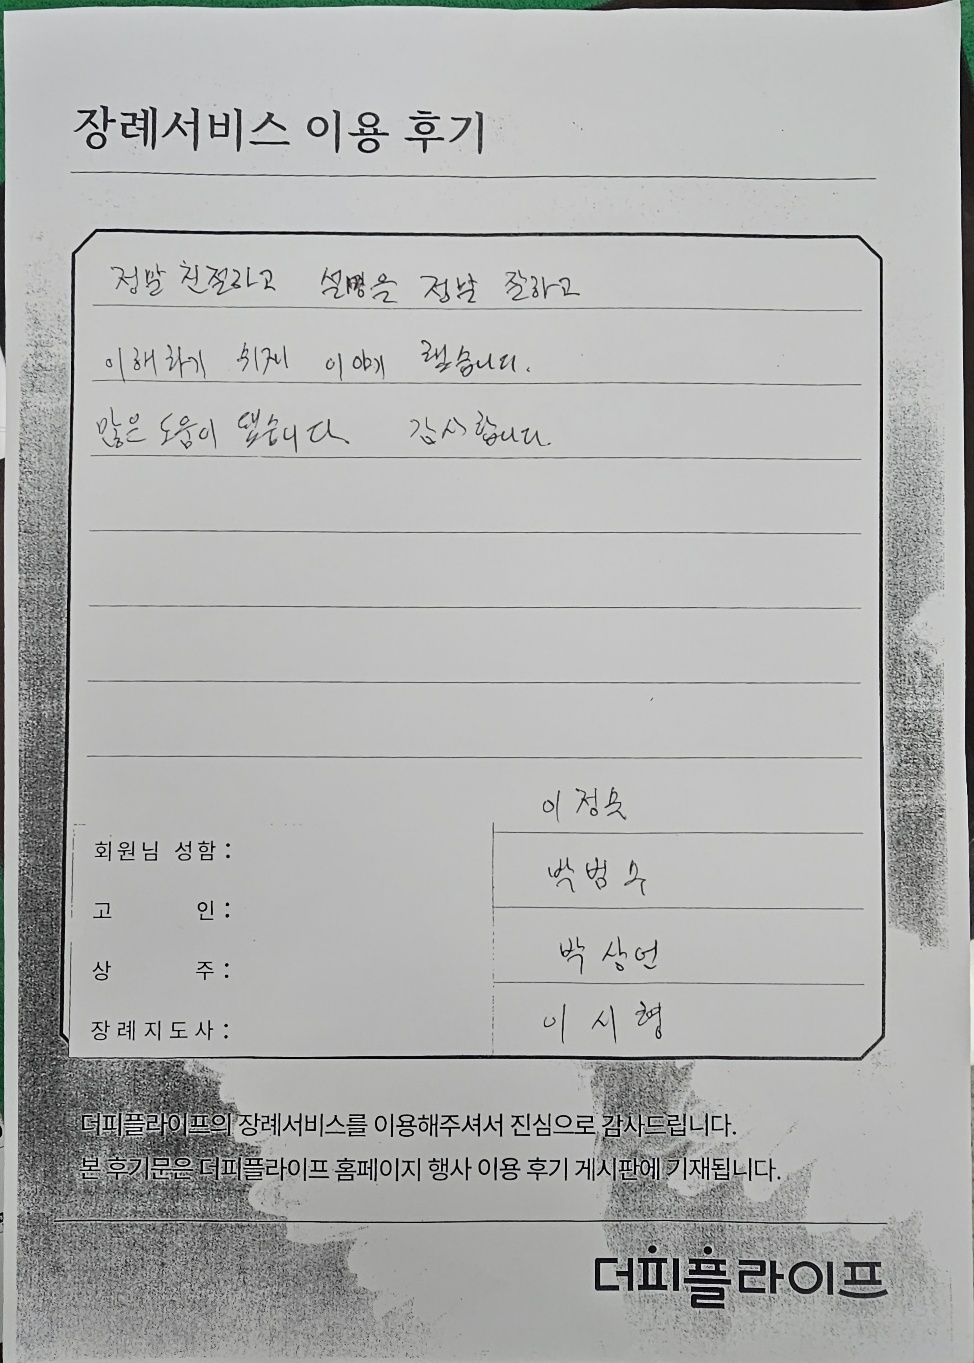 장례서비스 이용 후기
정말 친절하고 설명을 정말 잘하고
이해하기 쉬지 이야기 했습니다.
많은 도움이 됐습니다. 감사합니다.
이정옷
회원님 성함 :
박범수
고 인 :
박상언
상 주 :
이시형
장례지도사 :
더피플라이프의 장례서비스를 이용해주셔서 진심으로 감사드립니다.
본 후기문은 더피플라이프 홈페이지 행사 이용 후기 게시판에 기재됩니다.
더피플라이프